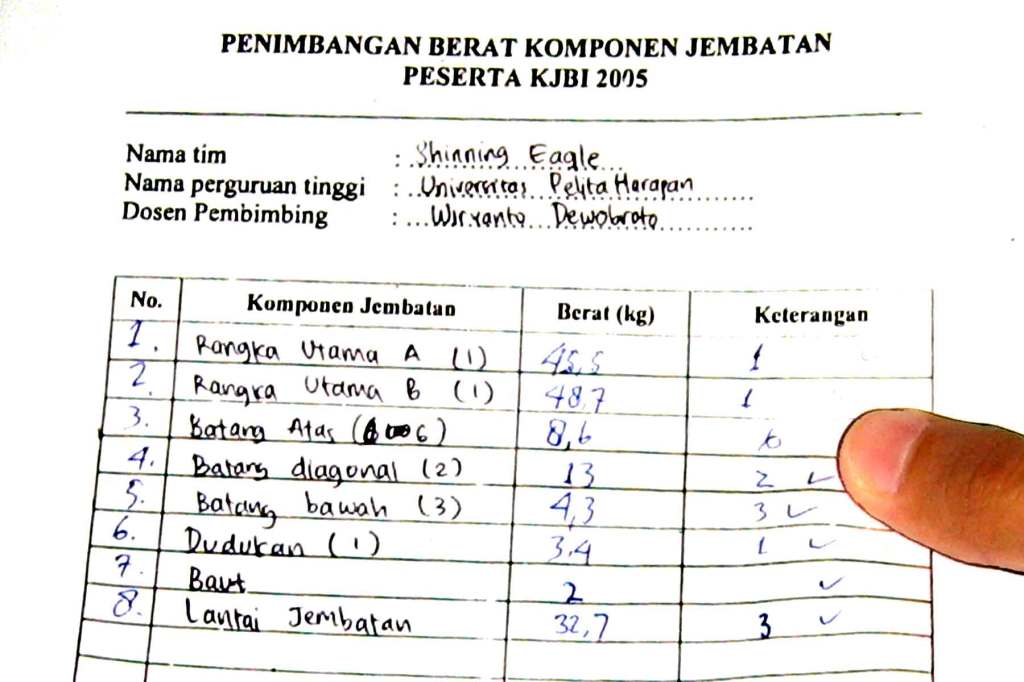 PENIMBANGAN BERAT KOMPONEN JEMBATAN
PESERTA KJBI 2005
Nama tim : Shinning Eagle
Nama perguruan tinggi : Universitas Pelita Harapan
Dosen Pembimbing : Wiryanto Dewobroto
No. Komponen Jembatan Berat (kg) Keterangan
1. Rangka Utama A (1) 45,5 1
2. Rangka Utama B (1) 48,7 1
3. Batang Atas (6) 8,6 6
4. Batang diagonal (2) 13 2 ✓
5. Batang bawah (3) 4,3 3 ✓
6. Dudukan (1) 3.4 1 ✓
7. Baut 2 ✓
8. Lantai Jembatan 32,7 3 ✓